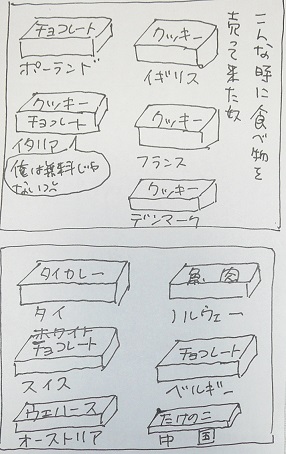 こんな時に食べ物を
売って来た奴
クッキー
イギリス
チョコレート
ポーランド
クッキー
フランス
クッキー
チョコレート
イタリア
俺は無料じゃ
クッキー
デンマーク
魚肉
ノルウェー
タイカレー
タイ
チョコレート
ベルギー
ホワイト
チョコレート
スイス
たけのこ
中国
ウエハース
オーストリア